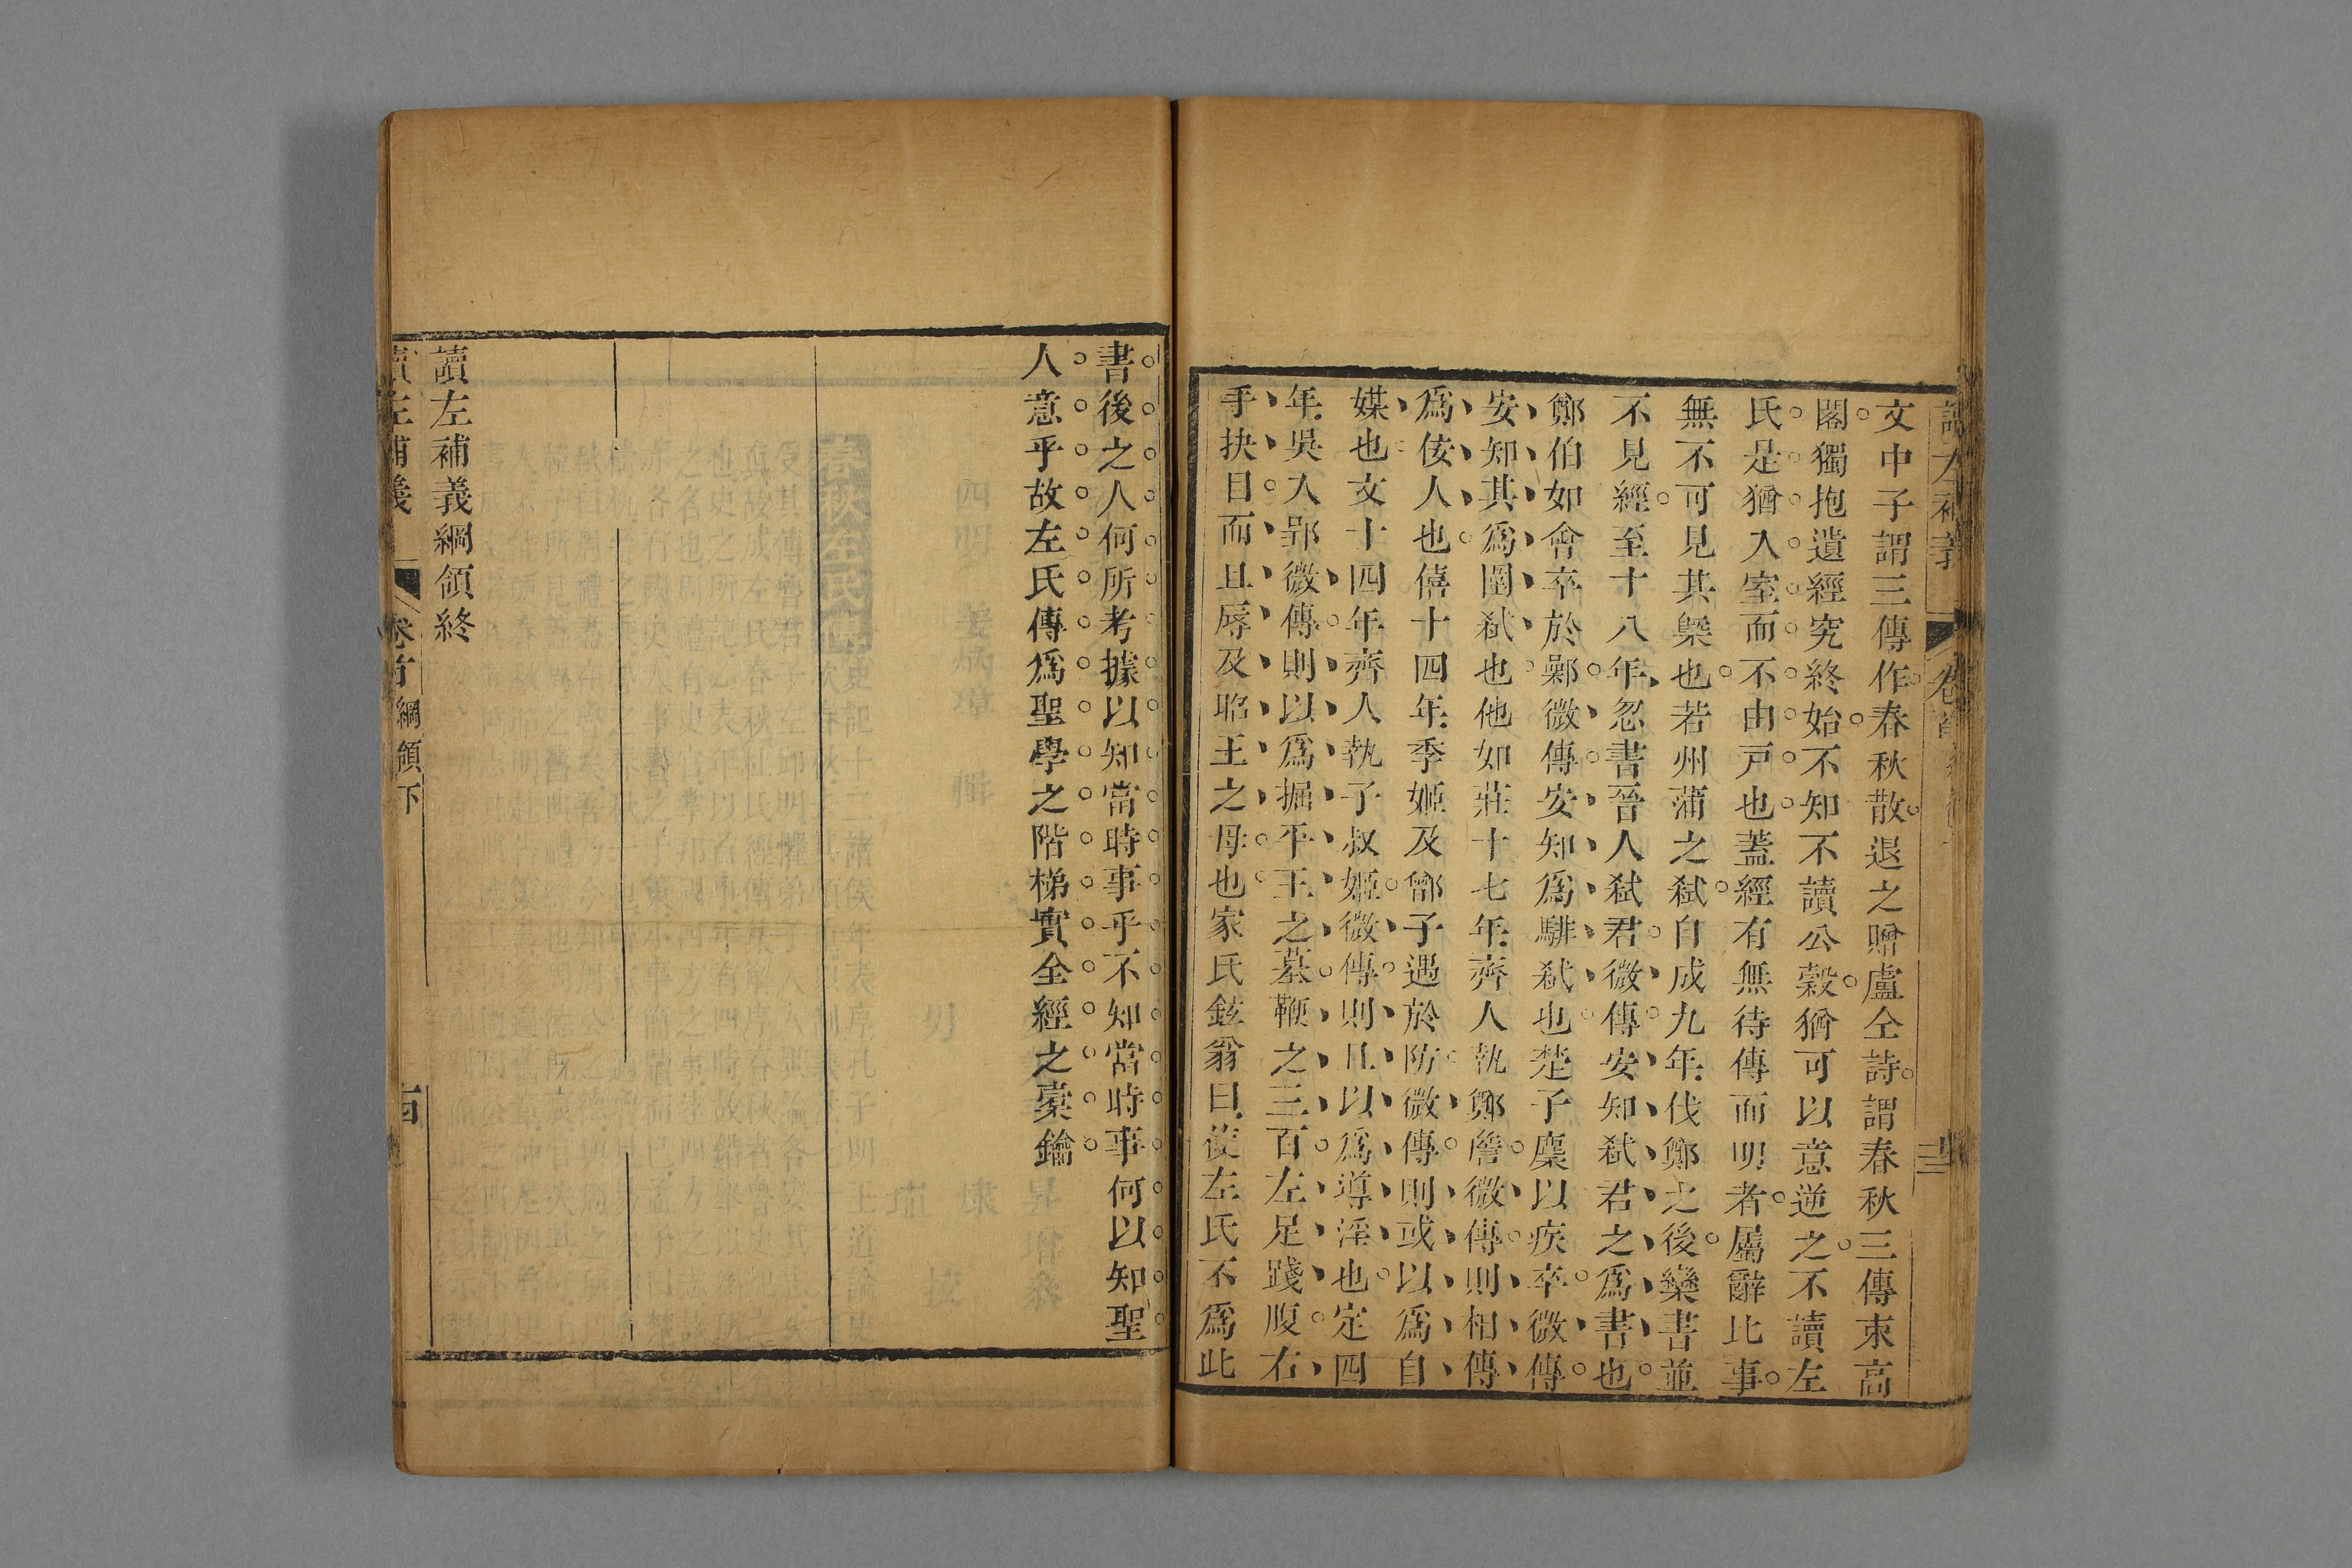 文中子謂三傳作春秋散退之贈盧仝詩謂春秋三傳束高
閣獨抱遺經究終始不知不讀公穀猶可以意逆之不讀左
氏是猶入室而不由戸也蓋經有無待傳而明者屬辭比事
無不可見其槩也若州蒲之弑自成九年伐鄭之後欒書並
不見經至十八年忽書晉人弑君微傳安知弑君之爲書也
鄭伯如會卒於鄵微傳安知爲騑弑也楚子麇以疾卒微傳
安知其爲圍弑也他如莊十七年齊人執鄭詹微傳則相傳
爲佞人也僖十四年季姬及鄫子遇於防微傳則或以爲自
媒也文十四年齊人執子叔姬微傳則且以爲導淫也定四
年吳入郢微傳則以爲掘平王之墓鞭之三百左足踐腹右
手抉目而且辱及昭王之母也家氏鉉翁曰使左氏不爲此
書後之人何所考據以知當時事乎不知當時事何以知聖
人意乎故左氏傳爲聖學之階梯實全經之橐鑰
讀左補義綱領終
讀左補義 卷首 綱領下